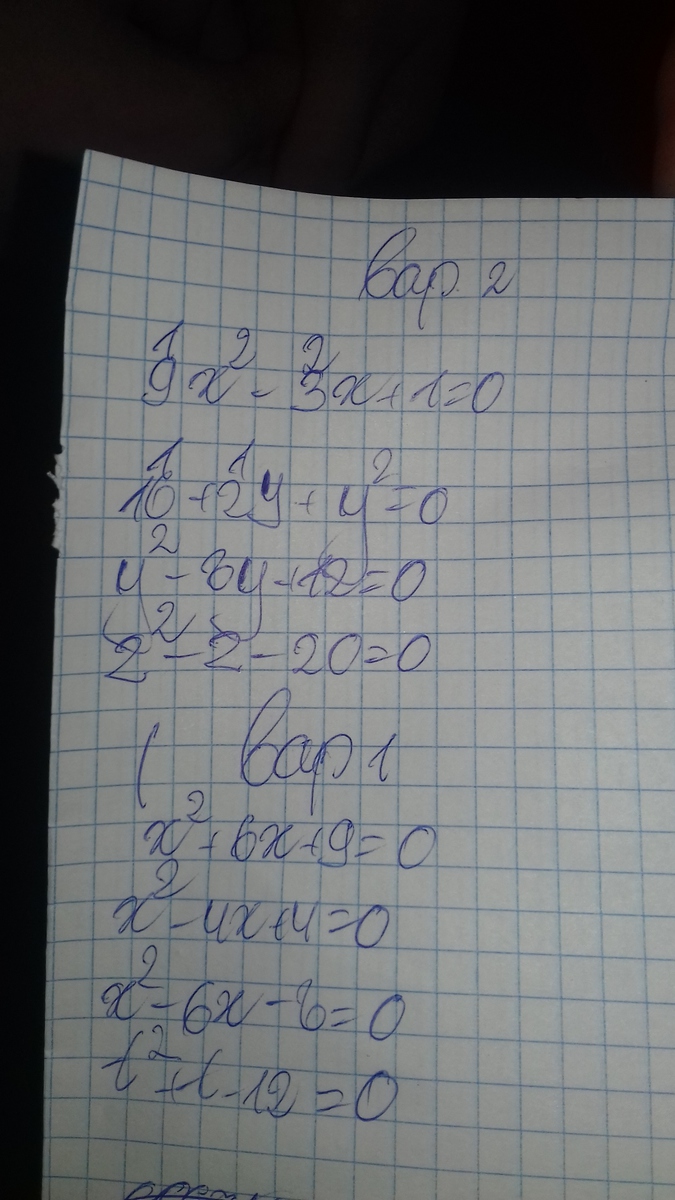 Вар. 2
1/9 x² - 2/3 x + 1 = 0
1/16 + 1/2 y + y² = 0
y² - 8y + 12 = 0
z² - z - 20 = 0
( Вар 1
x² + 6x + 9 = 0
x² - 4x + 4 = 0
x² - 6x - 8 = 0
t² + t - 12 = 0